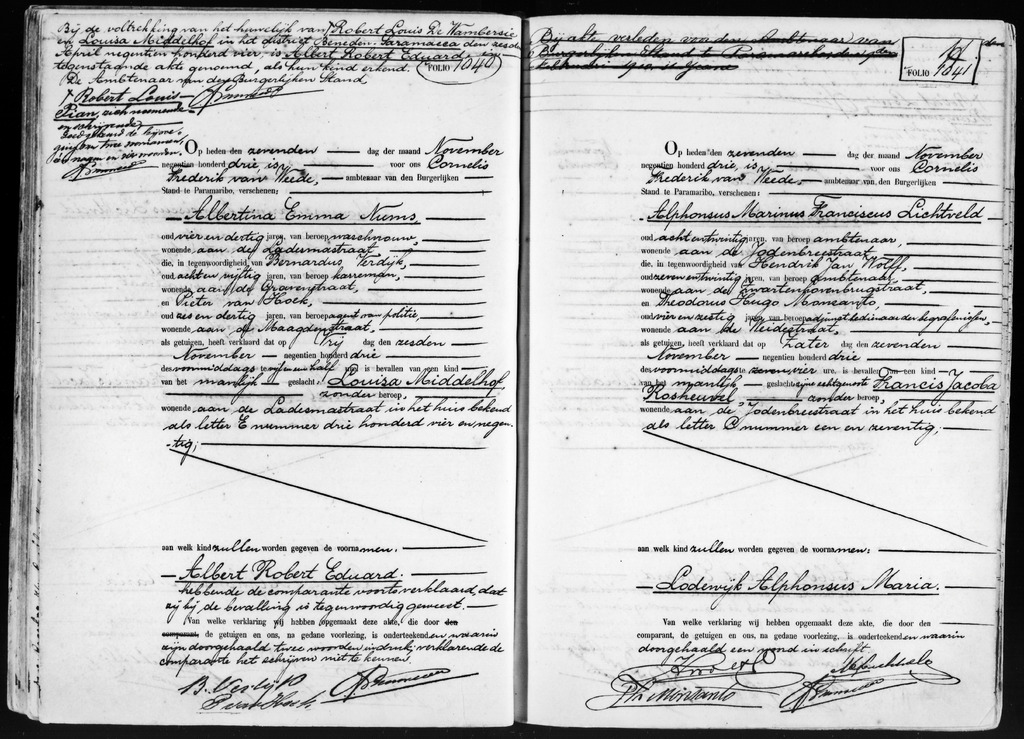 Bij de voltrekking van het huwelijk van Robert Louis De Wambersie
en Louisa Middelhof in het district Beneden-Saramacca den zesden
April negentien honderd vier, is Albert Robert Eduard in
tegenstaande akte genoemd, als hun kind erkend.
FOLIO 1040
De Ambtenaar van den Burgerlijken Stand
Robert Louis
Pian, zich noemende
en schrijvende
twee voornamen
Op heden den zevenden dag der maand November
negentien honderd drie is, voor ons Cornelis
Frederik van Weede, ambtenaar van den Burgerlijken
Stand te Paramaribo, verschenen:
Albertina Emma Nums,
oud vier en dertig jaren, van beroep waschvrouw,
wonende aan de Ladesmastraat,
die, in tegenwoordigheid van Bernardus Verdijk,
oud acht en vijftig jaren, van beroep karreman,
wonende aan de Gravenstraat,
en Pieter van Hoek,
oud zes en dertig jaren, van beroep agent van politie,
wonende aan de Maagdenstraat,
als getuigen, heeft verklaard dat op Vrij dag den zesden
November negentien honderd drie
des voormiddags te vijf en half ure is bevallen van een kind
van het manlijk geslacht: Louisa Middelhof
zonder beroep,
wonende aan de Ladesmastraat in het huis bekend
als letter E nummer drie honderd vier en negen-
tig;
aan welk kind zullen worden gegeven de voornamen:
Albert Robert Eduard.
hebbende de comparante voorts verklaard, dat
zij bij de bevalling is tegenwoordig geweest.
Van welke verklaring wij hebben opgemaakt deze akte, die door den
comparant, de getuigen en ons, na gedane voorlezing, is onderteekend en waarin
zijn doorgehaald twee woorden in druk; verklarende de
comparante het schrijven niet te kennen.
B. Verdijk
P. van Hoek
Bij akt verleden voor den Ambtenaar van
FOLIO 1041
Op heden den zevenden dag der maand November
negentien honderd drie, is voor ons Cornelis
Frederik van Weede, ambtenaar van den Burgerlijken
Stand te Paramaribo, verschenen:
Alphonsus Marinus Franciscus Lichtveld
oud acht en twintig jaren, van beroep ambtenaar,
wonende aan de Jodenbreestraat,
die, in tegenwoordigheid van Hendrik Jan Wolff,
oud zeven en twintig jaren, van beroep ambtenaar
wonende aan de Zwartenhovenbrugstraat,
en Theodorus Hugo Monsanto,
oud vier en zestig jaren, van beroep adjunct bedienaar der begrafenissen,
wonende aan de Weidestraat,
als getuigen, heeft verklaard dat op Zater dag den zevenden
November negentien honderd drie
des voormiddags vier ure is bevallen van een kind
van het manlijk geslacht: zijne echtgenoote Francis Jacoba
Rosheuvel, zonder beroep,
wonende aan de Jodenbreestraat in het huis bekend
als letter C nummer een en zeventig;
aan welk kind zullen worden gegeven de voornamen:
Lodewijk Alphonsus Maria.
Van welke verklaring wij hebben opgemaakt deze akte, die door den
comparant, de getuigen en ons, na gedane voorlezing, is onderteekend en waarin
doorgehaald een woord in schrift.
Th Monsanto